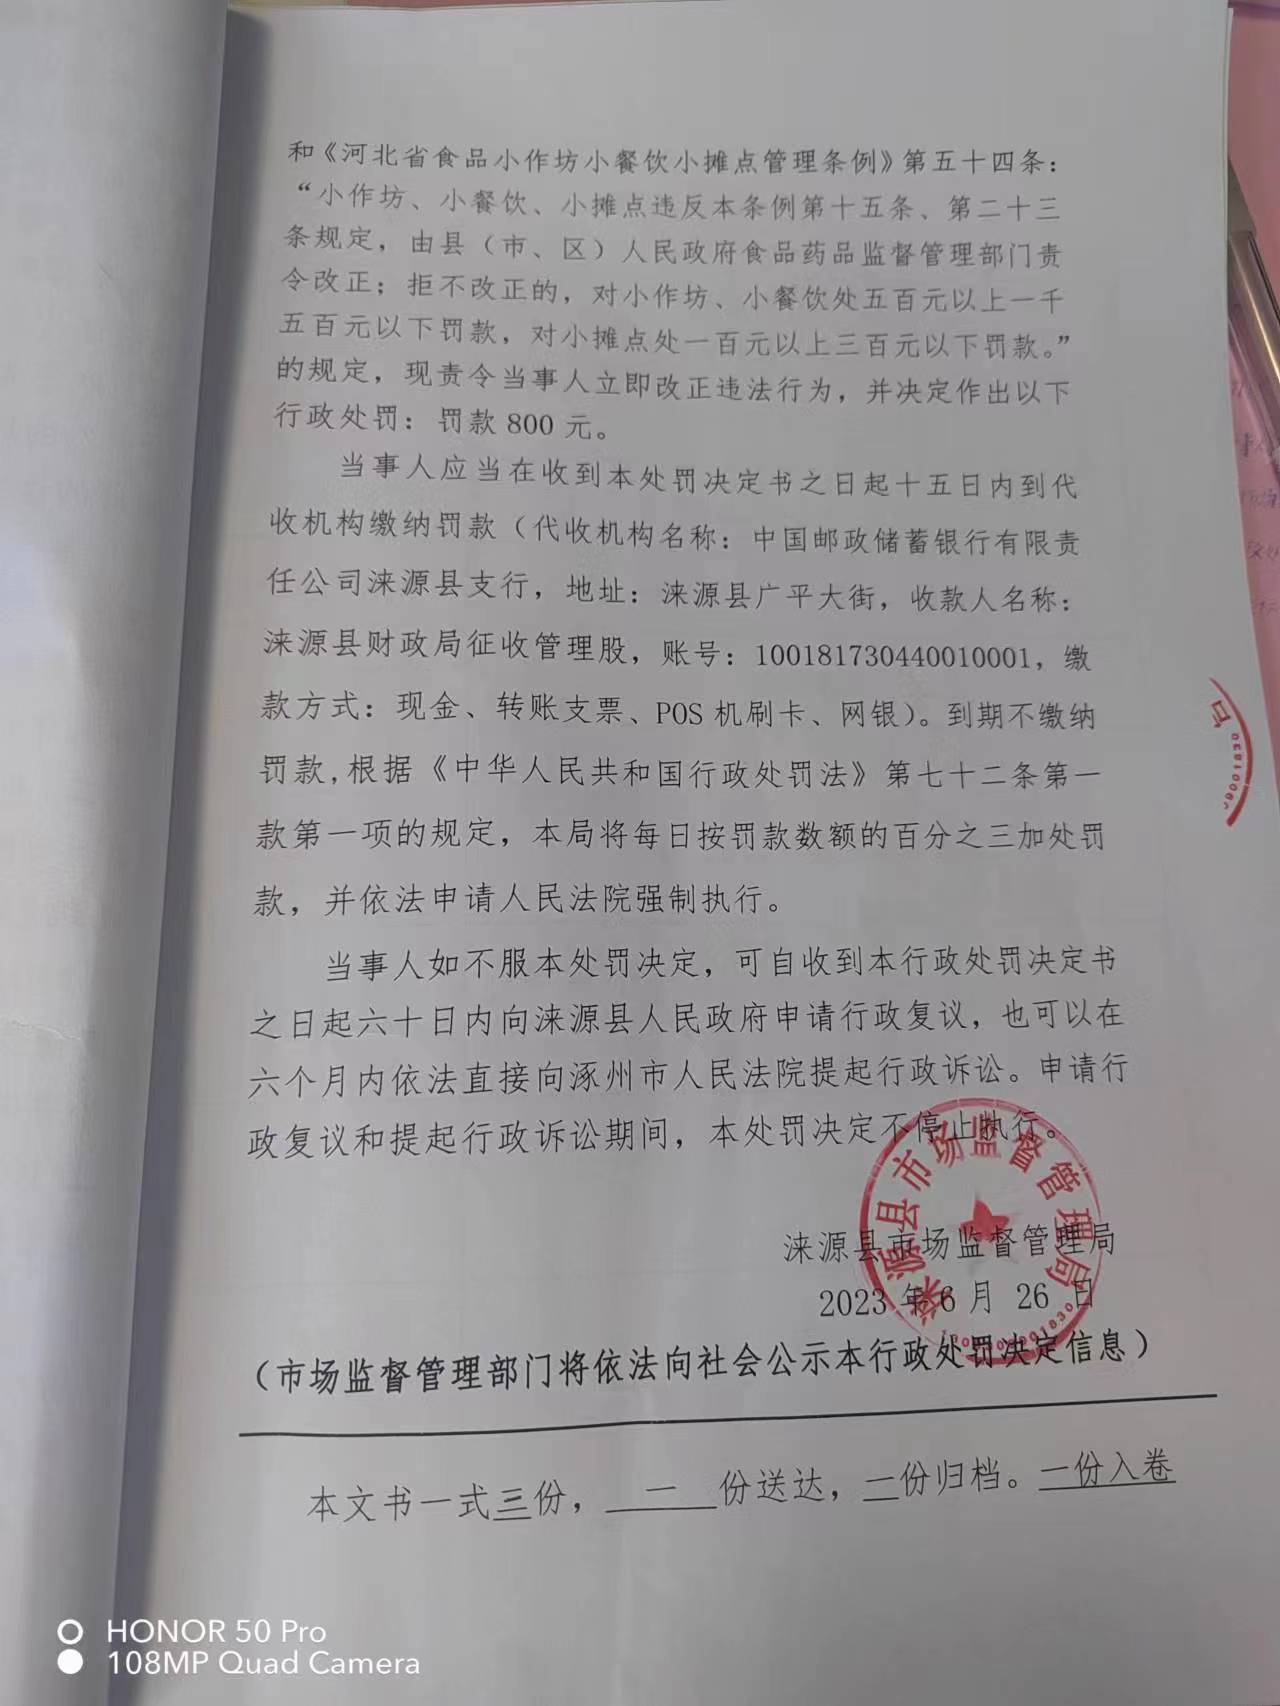 和《河北省食品小作坊小餐饮小摊点管理条例》第五十四条：
“小作坊、小餐饮、小摊点违反本条例第十五条、第二十三
条规定，由县（市、区）人民政府食品药品监督管理部门责
令改正；拒不改正的，对小作坊、小餐饮处五百元以上一千
五百元以下罚款，对小摊点处一百元以上三百元以下罚款。”
的规定，现责令当事人立即改正违法行为，并决定作出以下
行政处罚：罚款 800 元。
当事人应当在收到本处罚决定书之日起十五日内到代
收机构缴纳罚款（代收机构名称：中国邮政储蓄银行有限责
任公司涞源县支行，地址：涞源县广平大街，收款人名称：
涞源县财政局征收管理股，账号：100181730440010001，缴
款方式：现金、转账支票、POS 机刷卡、网银）。到期不缴纳
罚款,根据《中华人民共和国行政处罚法》第七十二条第一
款第一项的规定，本局将每日按罚款数额的百分之三加处罚
款，并依法申请人民法院强制执行。
当事人如不服本处罚决定，可自收到本行政处罚决定书
之日起六十日内向涞源县人民政府申请行政复议，也可以在
六个月内依法直接向涿州市人民法院提起行政诉讼。申请行
政复议和提起行政诉讼期间，本处罚决定不停止执行。
涞源县市场监督管理局
涞源县市场监督管理局
2023 年 6 月 26 日
（市场监督管理部门将依法向社会公示本行政处罚决定信息）
本文书一式三份，一份送达，一份归档。一份入卷
HONOR 50 Pro
108MP Quad Camera